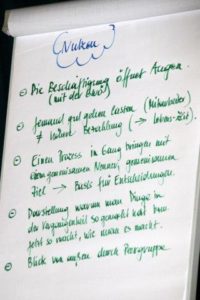 Nutzen
Die Beschäftigung öffnet Augen.
(mit der Basis)
jemand gut gehen lassen (Mitarbeiter)
≠ keine Bezahlung (→
Einen Prozess in Gang bringen mit
einem gemeinsamen Nenner, gemeinsamen
Ziel → Basis für Entscheidungen.
Darstellung warum man Dinge in
der Vergangenheit so gemacht hat bzw.
jetzt so macht, wie man es macht.
Blick von außen durch Peergruppe